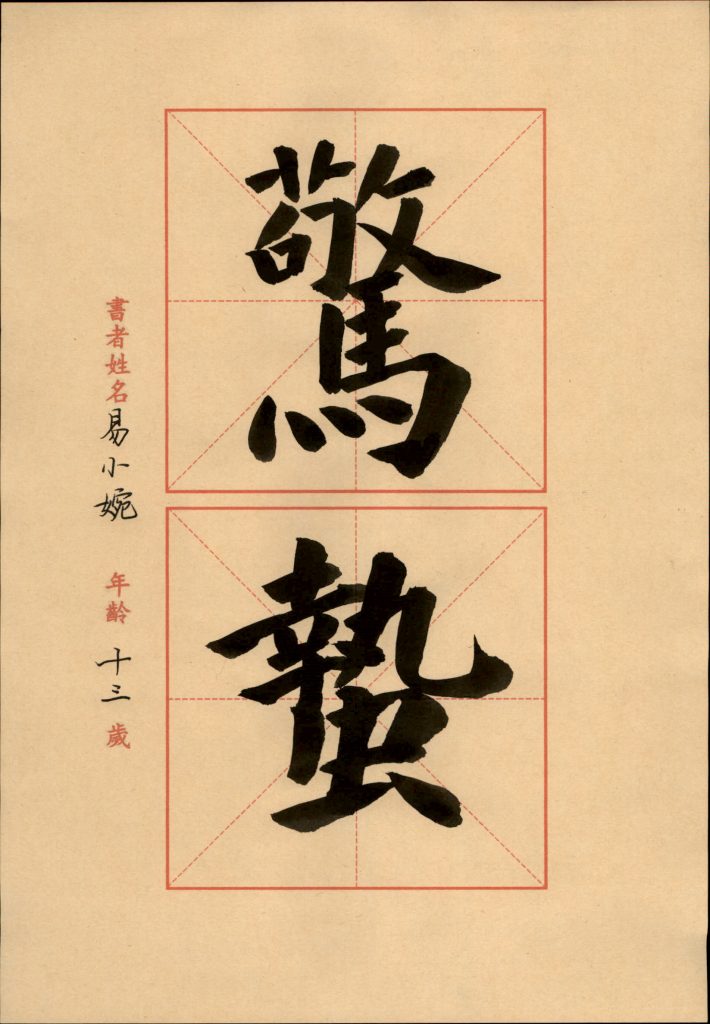 驚蟄
書者姓名易小婉 年齡十三歲